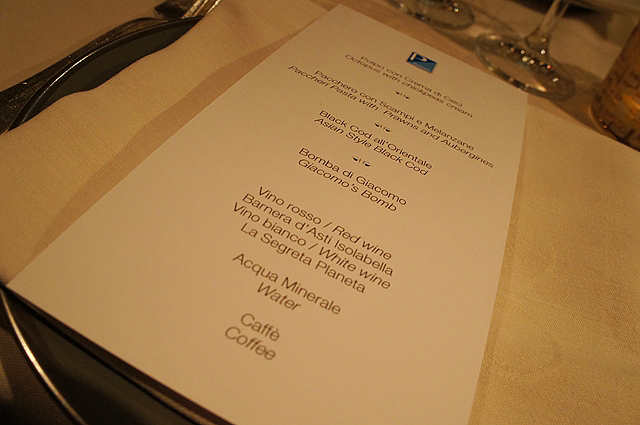 P
Polpo con Crema di Ceci
Octopus with chickpeas cream
Pacchero con Scampi e Melanzane
Paccheri Pasta with Prawns and Aubergines
Black Cod all'Orientale
Asian Style Black Cod
Bomba di Giacomo
Giacomo's Bomb
Vino rosso / Red wine
Barnera d'Asti Isolabella
Vino bianco / White wine
La Segreta Planeta
Acqua Minerale
Water
Caffè
Coffee